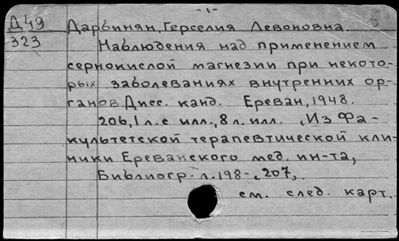 - 1 -
Д49 Дарбинян, Герселия Левоновна.
323 Наблюдения над применением
сернокислой магнезии при некото-
рых заболеваниях внутренних ор-
ганов. Дисс. канд. Ереван, 1948.
206, 1 л. с илл., 8 л. илл. (Из Фа-
культетской терапевтической кли-
ники Ереванского мед. ин-та,
Библиогр. л. 198-207,
см. след. карт.